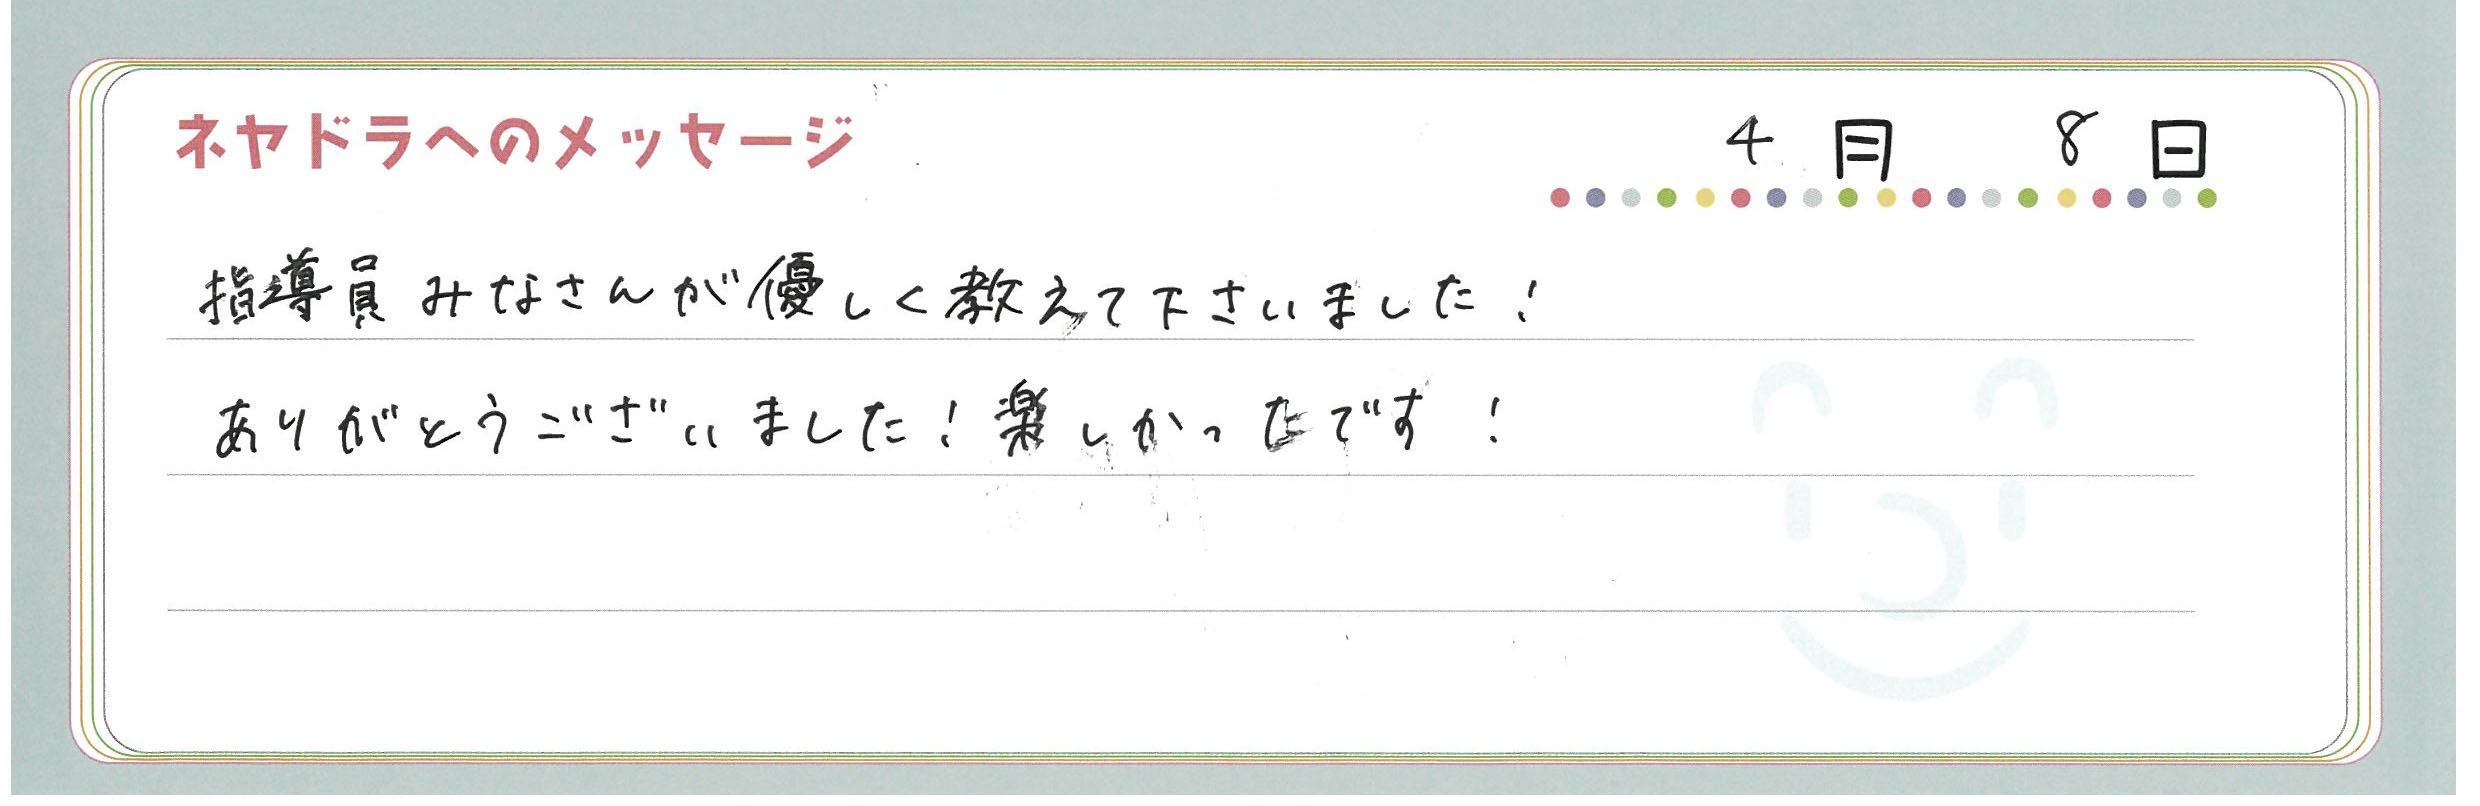 ネヤドラへのメッセージ
4月 8日
指導員みなさんが優しく教えて下さいました！
ありがとうございました！楽しかったです！